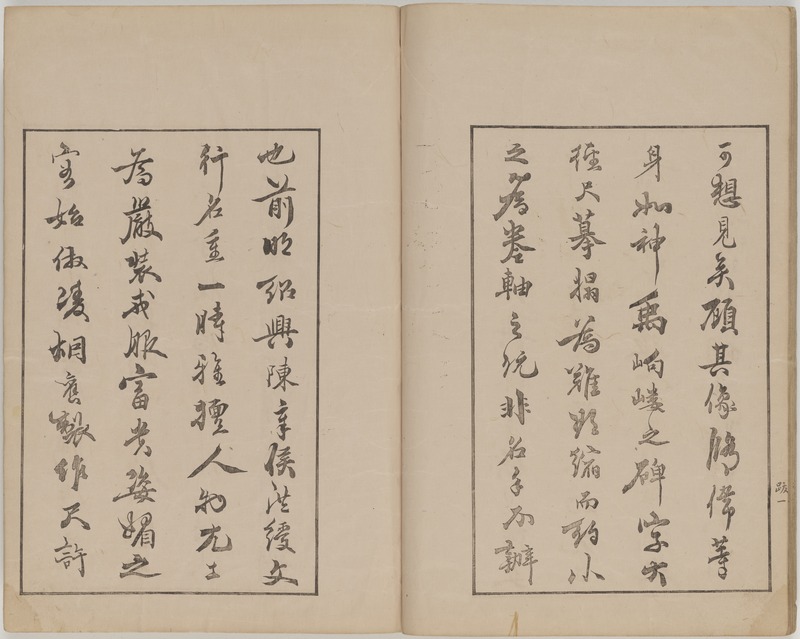 可想見矣顧其像脩偉等
身如神禹岣嶁之碑字大
徑尺摹搨為難縮而約小
之為卷軸之玩非名手不辦
跋一
也前明紹興陳章侯洪綬文
行名重一時雅擅人物尤工
為嚴裝戎服富貴姿媚之
容始製作尺許